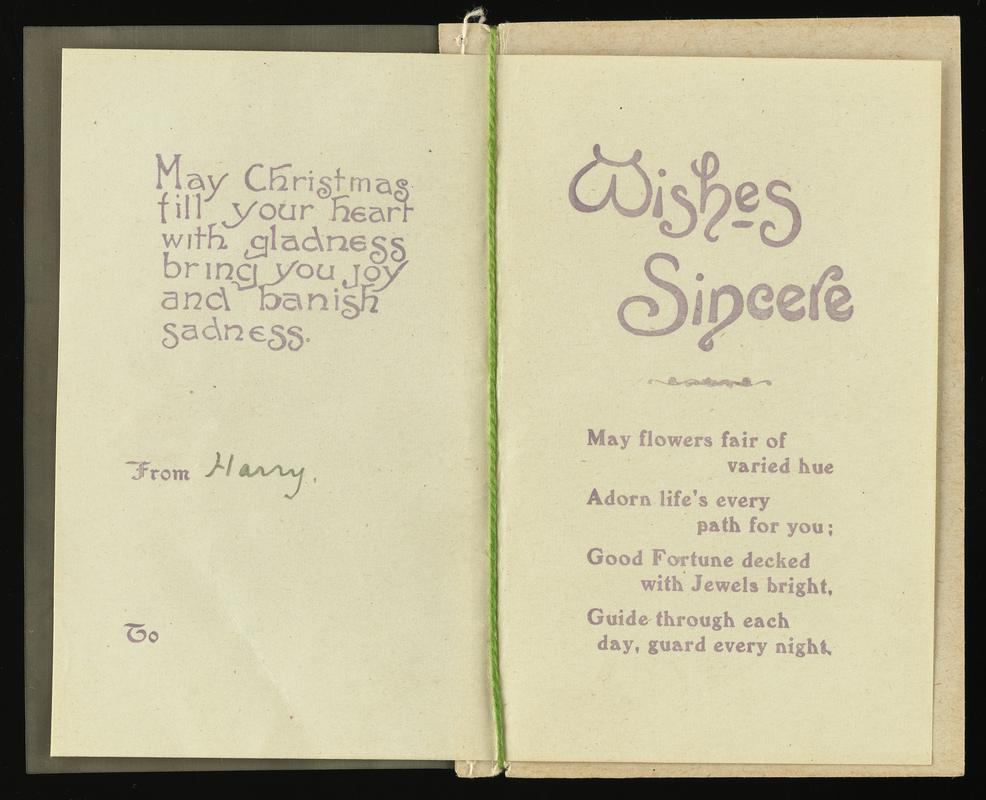 May Christmas
fill your heart
with gladness
bring you joy
and banish
sadness.
From Harry.
To
Wishes
Sincere
May flowers fair of
varied hue
Adorn life's every
path for you;
Good Fortune decked
with Jewels bright,
Guide through each
day, guard every night.